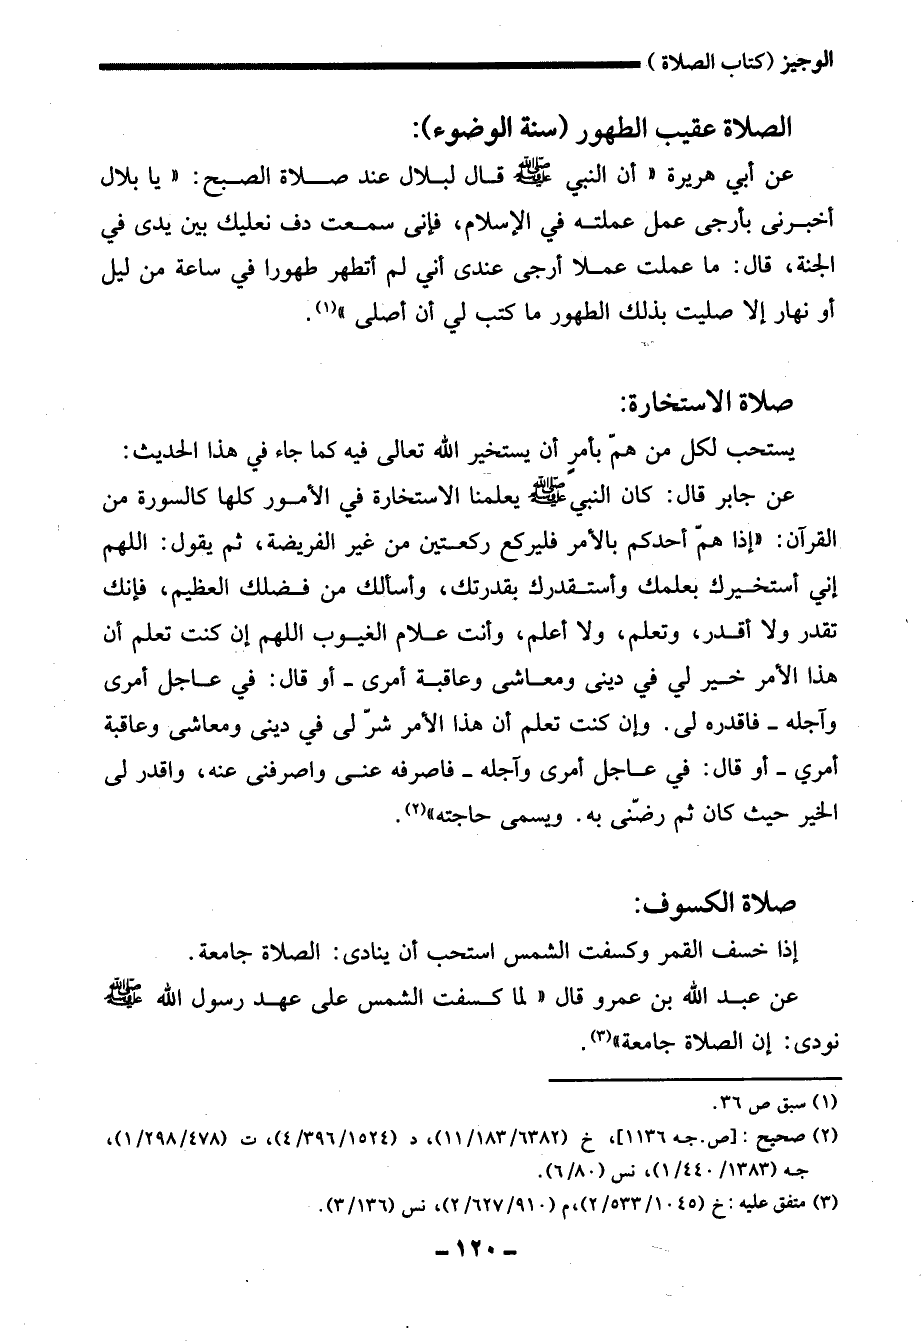 الوجيز (كتاب الصلاة)
الصلاة عقيب الطهور (سنة الوضوء):
عن أبي هريرة « أن النبي ﷺ قال لبلال عند صلاة الصبح: « يا بلال
أخبرنى بأرجى عمل عملته في الإسلام، فإنى سمعت دف نعليك بين يدى في
الجنة، قال: ما عملت عملا أرجى عندى أني لم أتطهر طهورا في ساعة من ليل
أو نهار إلا صليت بذلك الطهور ما كتب لي أن أصلى »(١).
صلاة الاستخارة:
يستحب لكل من همّ بأمرٍ أن يستخير الله تعالى فيه كما جاء في هذا الحديث:
عن جابر قال: كان النبي ﷺ يعلمنا الاستخارة في الأمور كلها كالسورة من
القرآن: «إذا همّ أحدكم بالأمر فليركع ركعتين من غير الفريضة، ثم يقول: اللهم
إني أستخيرك بعلمك وأستقدرك بقدرتك، وأسألك من فضلك العظيم، فإنك
تقدر ولا أقدر، وتعلم، ولا أعلم، وأنت علام الغيوب اللهم إن كنت تعلم أن
هذا الأمر خير لي في دينى ومعاشى وعاقبة أمرى ـ أو قال: في عاجل أمرى
وآجله ـ فاقدره لى. وإن كنت تعلم أن هذا الأمر شرّ لى في دينى ومعاشى وعاقبة
أمري ـ أو قال: في عاجل أمرى وآجله ـ فاصرفه عنى واصرفنى عنه، واقدر لى
الخير حيث كان ثم رضّنى به. ويسمى حاجته»(٢).
صلاة الكسوف:
إذا خسف القمر وكسفت الشمس استحب أن ينادى: الصلاة جامعة.
عن عبد الله بن عمرو قال « لما كسفت الشمس على عهد رسول الله ﷺ
نودى: إن الصلاة جامعة»(٣).
(١) سبق ص ٣٦.
(٢) صحيح : [ص.جه ١١٣٦]، خ (١١/١٨٣/٦٣٨٢)، د (٤/٣٩٦/١٥٢٤)، ت (١/٢٩٨/٤٧٨)،
جه (١/٤٤٠/١٣٨٣)، نس (٦/٨٠).
(٣) متفق عليه : خ (٢/٥٣٣/١٠٤٥)،م (٢/٦٢٧/٩١٠)، نس (٣/١٣٦).
ـ ١٢٠ ـ